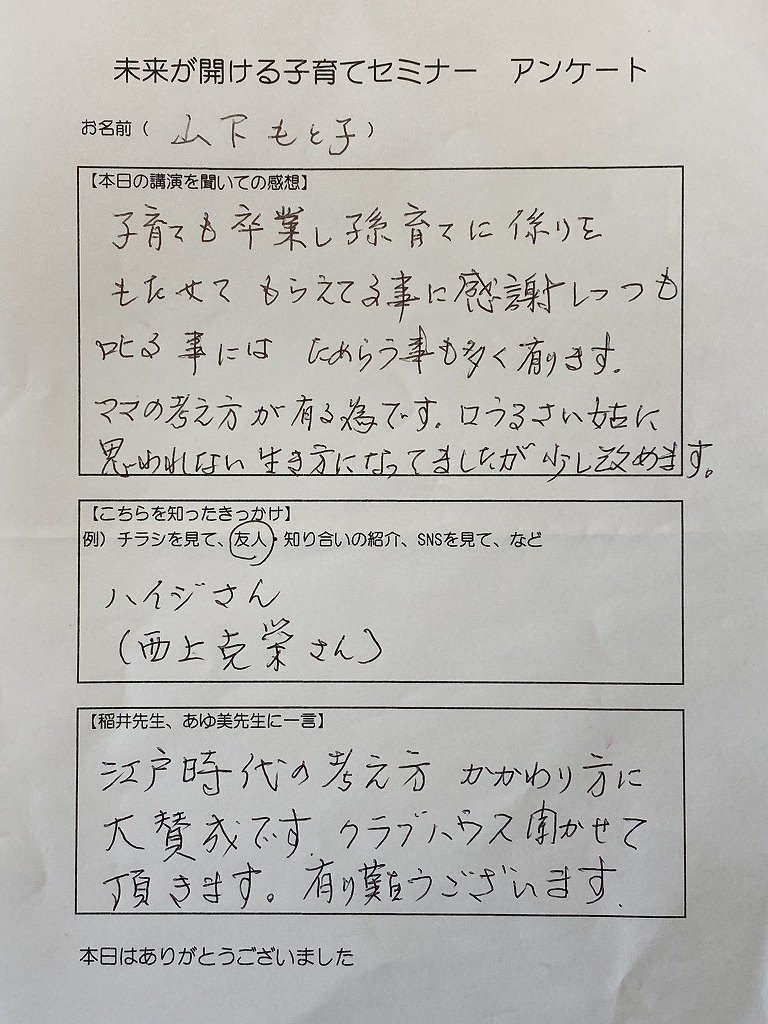 未来が開ける子育てセミナー　アンケート
お名前（ 山下もと子 ）
【本日の講演を聞いての感想】
子育ても卒業し孫育てに係りを
もたせて もらえてる事に感謝しつつも
叱る事には ためらう事も多く有ります。
ママの考え方が有る為です。口うるさい姑に
思われない生き方になってましたが少し改めます。
【こちらを知ったきっかけ】
例）チラシを見て、友人・知り合いの紹介、SNSを見て、など
ハイジさん
（西上克栄さん）
【稲井先生、あゆ美先生に一言】
江戸時代の考え方 かかわり方に
大賛成です。クラブハウス聞かせて
頂きます。有り難うございます。
本日はありがとうございました